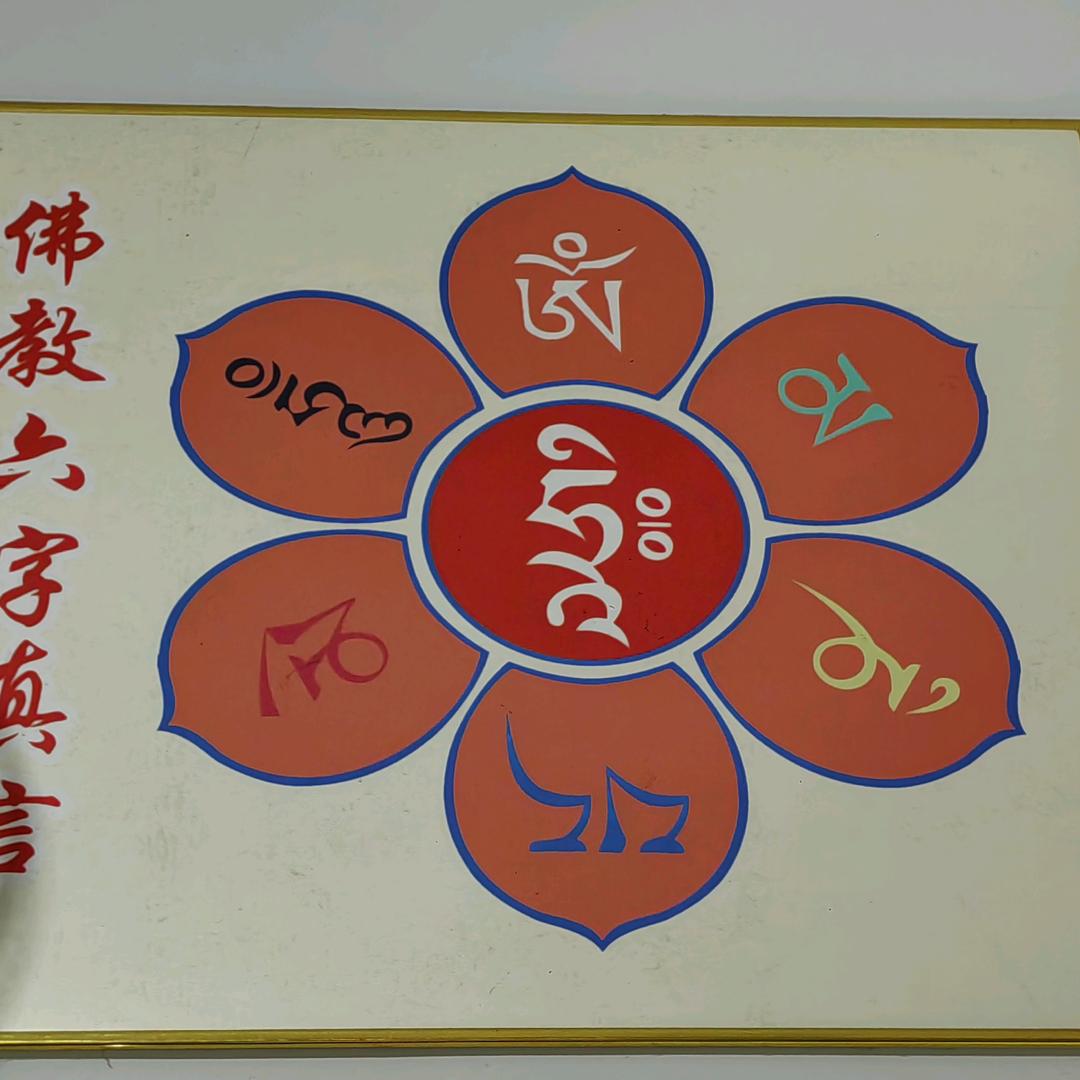 佛教六字真言
ཨོཾ
མ
ཎི
པད
མེ
ཧཱུྃ
ཧྲཱིཿ